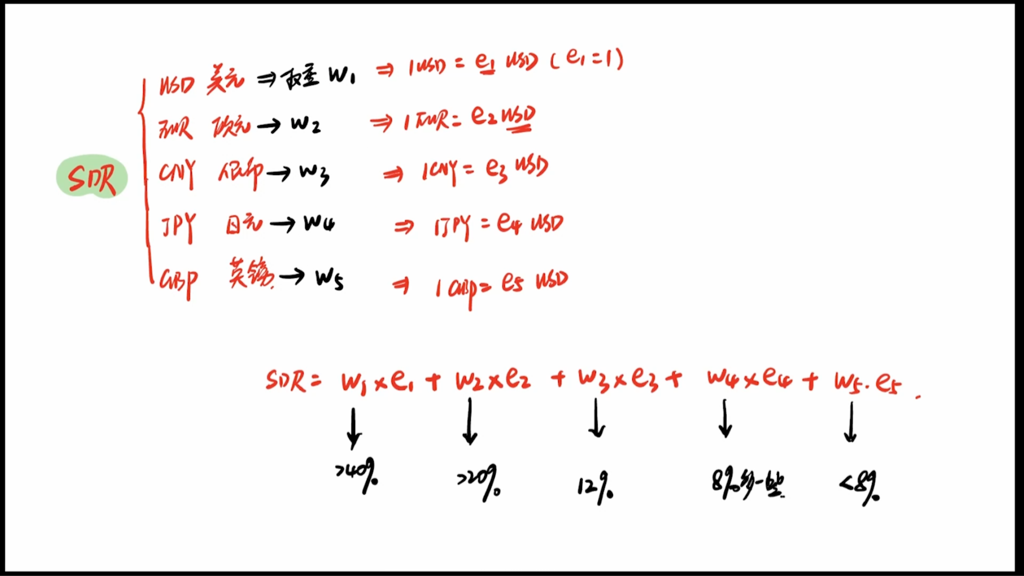 USD 美元 ⇒ 权重 W₁ ⇒ 1USD = e₁ USD (e₁=1)
EUR 欧元 → W₂ ⇒ 1EUR = e₂ USD
SDR
CNY 人民币 → W₃ ⇒ 1CNY = e₃ USD
JPY 日元 → W₄ ⇒ 1JPY = e₄ USD
GBP 英镑 → W₅ ⇒ 1GBP = e₅ USD
SDR = W₁×e₁ + W₂×e₂ + W₃×e₃ + W₄×e₄ + W₅·e₅.
>40% >20% 12% 8%多一些 <8%